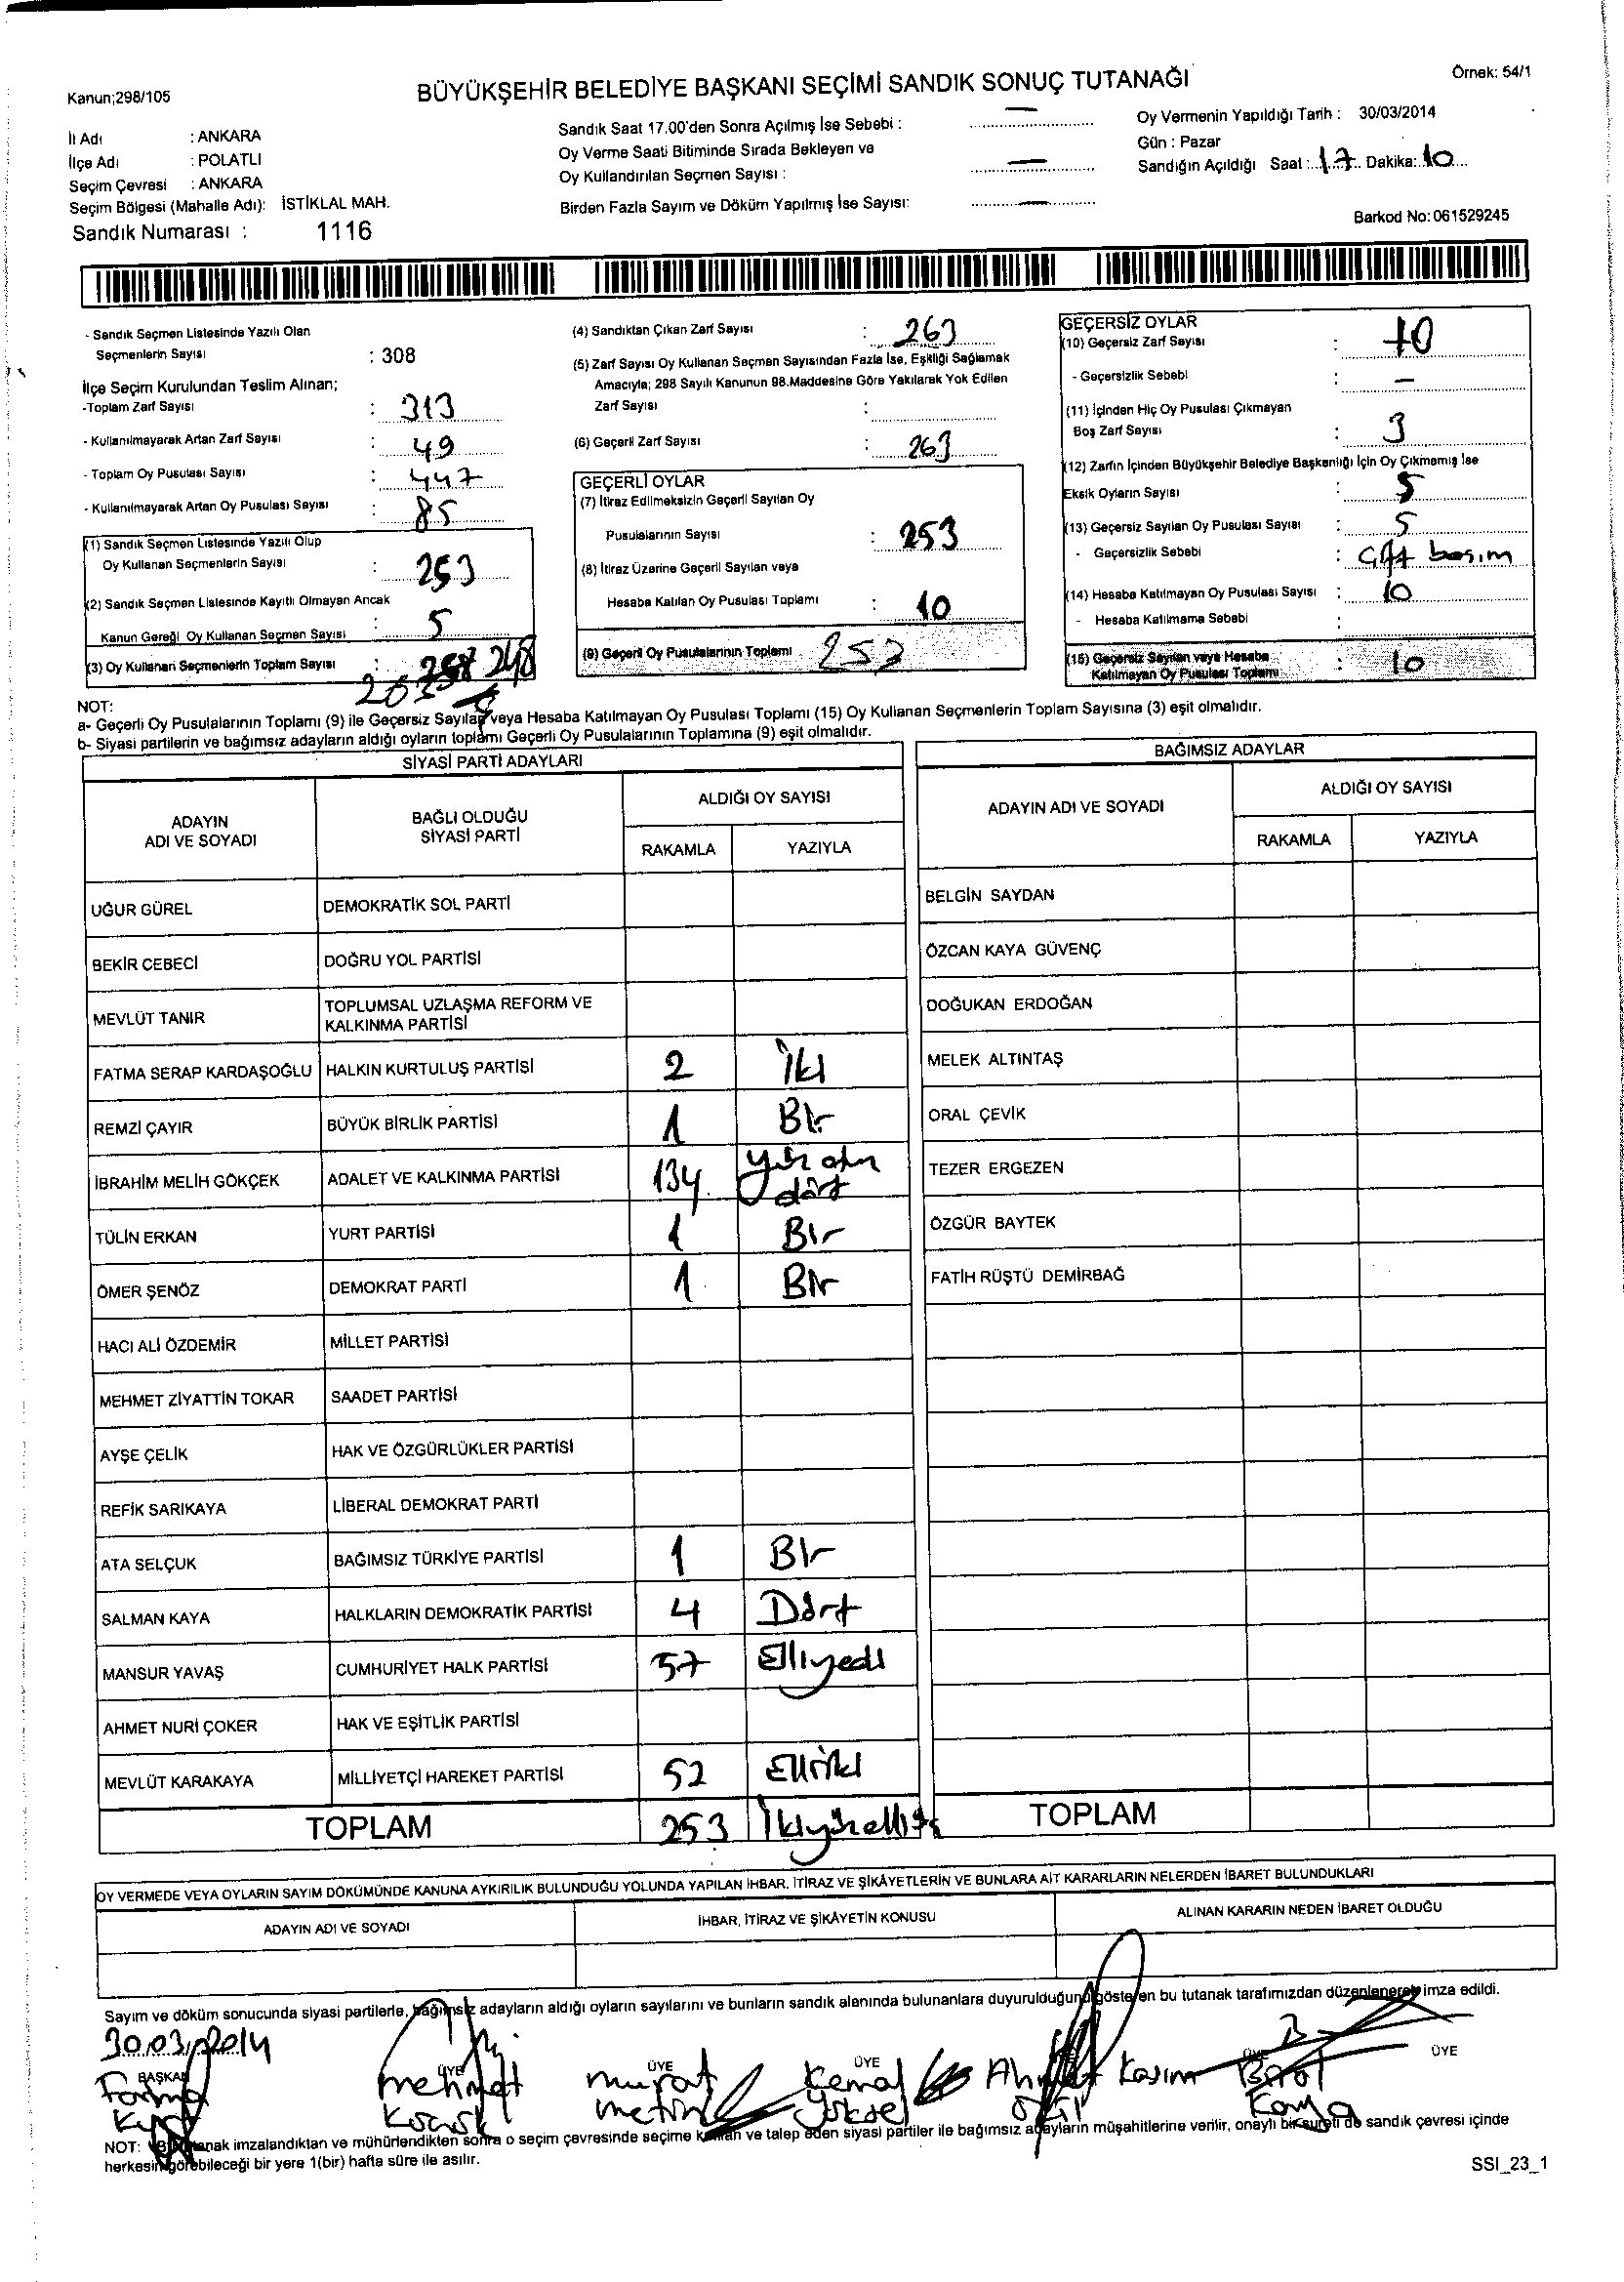 Örnek: 54/1
Kanun;298/105
BÜYÜKŞEHİR BELEDİYE BAŞKANI SEÇİMİ SANDIK SONUÇ TUTANAĞI
İl Adı : ANKARA
İlçe Adı : POLATLI
Seçim Çevresi : ANKARA
Seçim Bölgesi (Mahalle Adı): İSTİKLAL MAH.
Sandık Numarası : 1116
Sandık Saat 17.00'den Sonra Açılmış İse Sebebi : —
Oy Verme Saati Bitiminde Sırada Bekleyen ve
Oy Kullandırılan Seçmen Sayısı : —
Birden Fazla Sayım ve Döküm Yapılmış İse Sayısı: —
Oy Vermenin Yapıldığı Tarih : 30/03/2014
Gün : Pazar
Sandığın Açıldığı Saat : 17 Dakika: 10
Barkod No: 061529245
- Sandık Seçmen Listesinde Yazılı Olan
Seçmenlerin Sayısı : 308
İlçe Seçim Kurulundan Teslim Alınan;
-Toplam Zarf Sayısı : 313
- Kullanılmayarak Artan Zarf Sayısı : 49
- Toplam Oy Pusulası Sayısı : 447
- Kullanılmayarak Artan Oy Pusulası Sayısı : 85
(1) Sandık Seçmen Listesinde Yazılı Olup
Oy Kullanan Seçmenlerin Sayısı : 253
(2) Sandık Seçmen Listesinde Kayıtlı Olmayan Ancak
Kanun Gereği Oy Kullanan Seçmen Sayısı : 5
(3) Oy Kullanan Seçmenlerin Toplam Sayısı : 248
(4) Sandıktan Çıkan Zarf Sayısı : 263
(5) Zarf Sayısı Oy Kullanan Seçmen Sayısından Fazla İse, Eşitliği Sağlamak
Amacıyla; 298 Sayılı Kanunun 98.Maddesine Göre Yakılarak Yok Edilen
Zarf Sayısı :
(6) Geçerli Zarf Sayısı : 263
GEÇERLİ OYLAR
(7) İtiraz Edilmeksizin Geçerli Sayılan Oy
Pusulalarının Sayısı : 253
(8) İtiraz Üzerine Geçerli Sayılan veya
Hesaba Katılan Oy Pusulası Toplamı : 10
(9) Geçerli Oy Pusulalarının Toplamı 253
GEÇERSİZ OYLAR
(10) Geçersiz Zarf Sayısı : 10
- Geçersizlik Sebebi : —
(11) İçinden Hiç Oy Pusulası Çıkmayan
Boş Zarf Sayısı : 3
(12) Zarfın İçinden Büyükşehir Belediye Başkanlığı İçin Oy Çıkmamış İse
Eksik Oyların Sayısı : 5
(13) Geçersiz Sayılan Oy Pusulası Sayısı : 5
- Geçersizlik Sebebi : Çift basım
(14) Hesaba Katılmayan Oy Pusulası Sayısı : 10
- Hesaba Katılmama Sebebi :
(15) Geçersiz Sayılan veya Hesaba
Katılmayan Oy Pusulası Toplamı : 10
NOT:
a- Geçerli Oy Pusulalarının Toplamı (9) ile Geçersiz Sayılan veya Hesaba Katılmayan Oy Pusulası Toplamı (15) Oy Kullanan Seçmenlerin Toplam Sayısına (3) eşit olmalıdır.
b- Siyasi partilerin ve bağımsız adayların aldığı oyların toplamı Geçerli Oy Pusulalarının Toplamına (9) eşit olmalıdır.
SİYASİ PARTİ ADAYLARI
ADAYIN ADI VE SOYADI
BAĞLI OLDUĞU SİYASİ PARTİ
ALDIĞI OY SAYISI
RAKAMLA YAZIYLA
UĞUR GÜREL DEMOKRATİK SOL PARTİ
BEKİR CEBECİ DOĞRU YOL PARTİSİ
MEVLÜT TANIR TOPLUMSAL UZLAŞMA REFORM VE KALKINMA PARTİSİ
FATMA SERAP KARDAŞOĞLU HALKIN KURTULUŞ PARTİSİ 2 İki
REMZİ ÇAYIR BÜYÜK BİRLİK PARTİSİ 1 Bir
İBRAHİM MELİH GÖKÇEK ADALET VE KALKINMA PARTİSİ 134 dört
TÜLİN ERKAN YURT PARTİSİ 1 Bir
ÖMER ŞENÖZ DEMOKRAT PARTİ 1 Bir
HACI ALİ ÖZDEMİR MİLLET PARTİSİ
MEHMET ZİYATTİN TOKAR SAADET PARTİSİ
AYŞE ÇELİK HAK VE ÖZGÜRLÜKLER PARTİSİ
REFİK SARIKAYA LİBERAL DEMOKRAT PARTİ
ATA SELÇUK BAĞIMSIZ TÜRKİYE PARTİSİ 1 Bir
SALMAN KAYA HALKLARIN DEMOKRATİK PARTİSİ 4 Dört
MANSUR YAVAŞ CUMHURİYET HALK PARTİSİ 57 Elliyedi
AHMET NURİ ÇOKER HAK VE EŞİTLİK PARTİSİ
MEVLÜT KARAKAYA MİLLİYETÇİ HAREKET PARTİSİ 52 Elliiki
TOPLAM 253
BAĞIMSIZ ADAYLAR
ADAYIN ADI VE SOYADI
ALDIĞI OY SAYISI
RAKAMLA YAZIYLA
BELGİN SAYDAN
ÖZCAN KAYA GÜVENÇ
DOĞUKAN ERDOĞAN
MELEK ALTINTAŞ
ORAL ÇEVİK
TEZER ERGEZEN
ÖZGÜR BAYTEK
FATİH RÜŞTÜ DEMİRBAĞ
TOPLAM
OY VERMEDE VEYA OYLARIN SAYIM DÖKÜMÜNDE KANUNA AYKIRILIK BULUNDUĞU YOLUNDA YAPILAN İHBAR, İTİRAZ VE ŞİKÂYETLERİN VE BUNLARA AİT KARARLARIN NELERDEN İBARET BULUNDUKLARI
ADAYIN ADI VE SOYADI
İHBAR, İTİRAZ VE ŞİKÂYETİN KONUSU
ALINAN KARARIN NEDEN İBARET OLDUĞU
Sayım ve döküm sonucunda siyasi partilerle, bağımsız adayların aldığı oyların sayılarını ve bunların sandık alanında bulunanlara duyurulduğunu gösteren bu tutanak tarafımızdan düzenlenerek imza edildi.
30.03.2014
BAŞKAN ÜYE ÜYE ÜYE ÜYE ÜYE
Fatma Mehmet Murat Kemal Ahmet Kasım Birol
Metin Yüksel Kaya
NOT: Bu tutanak imzalandıktan ve mühürlendikten sonra o seçim çevresinde seçime katılan ve talep eden siyasi partiler ile bağımsız adayların müşahitlerine verilir, onaylı bir sureti de sandık çevresi içinde
herkesin görebileceği bir yere 1(bir) hafta süre ile asılır.
SSI_23_1